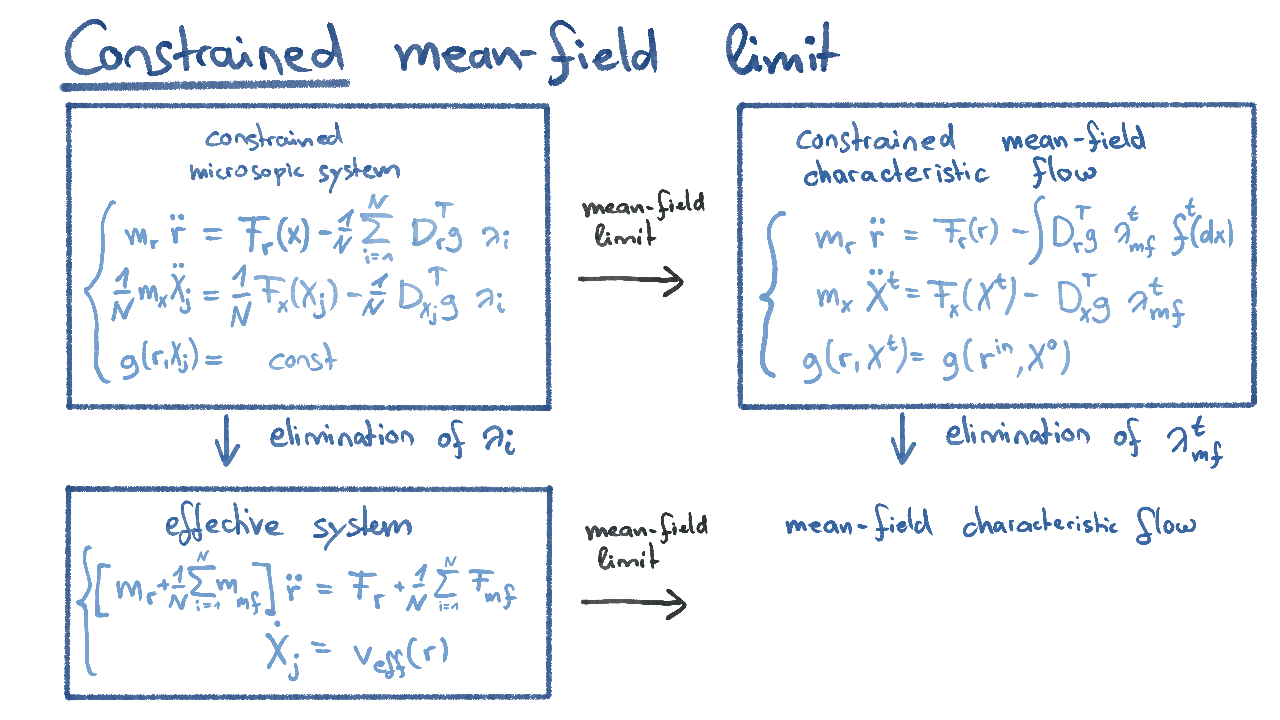 Constrained mean-field limit
constrained
microsopic system
m_r r̈ = F_r(x) - 1/N ∑_{i=1}^N D_r^T g λ_i
1/N m_x Ẍ_j = 1/N F_x(X_j) - 1/N D_{x_j}^T g λ_i
g(r, X_j) = const
mean-field
limit
constrained mean-field
characteristic flow
m_r r̈ = F_r(r) - ∫ D_r^T g λ_{mf}^t f^t(dx)
m_x Ẍ^t = F_x(X^t) - D_x^T g λ_{mf}^t
g(r, X^t) = g(r^{in}, X^0)
elimination of λ_i
elimination of λ_{mf}^t
effective system
[m_r + 1/N ∑_{i=1}^N m_{mf}] r̈ = F_r + 1/N ∑_{i=1}^N F_{mf}
Ẋ_j = v_{eff}(r)
mean-field
limit
mean-field characteristic flow